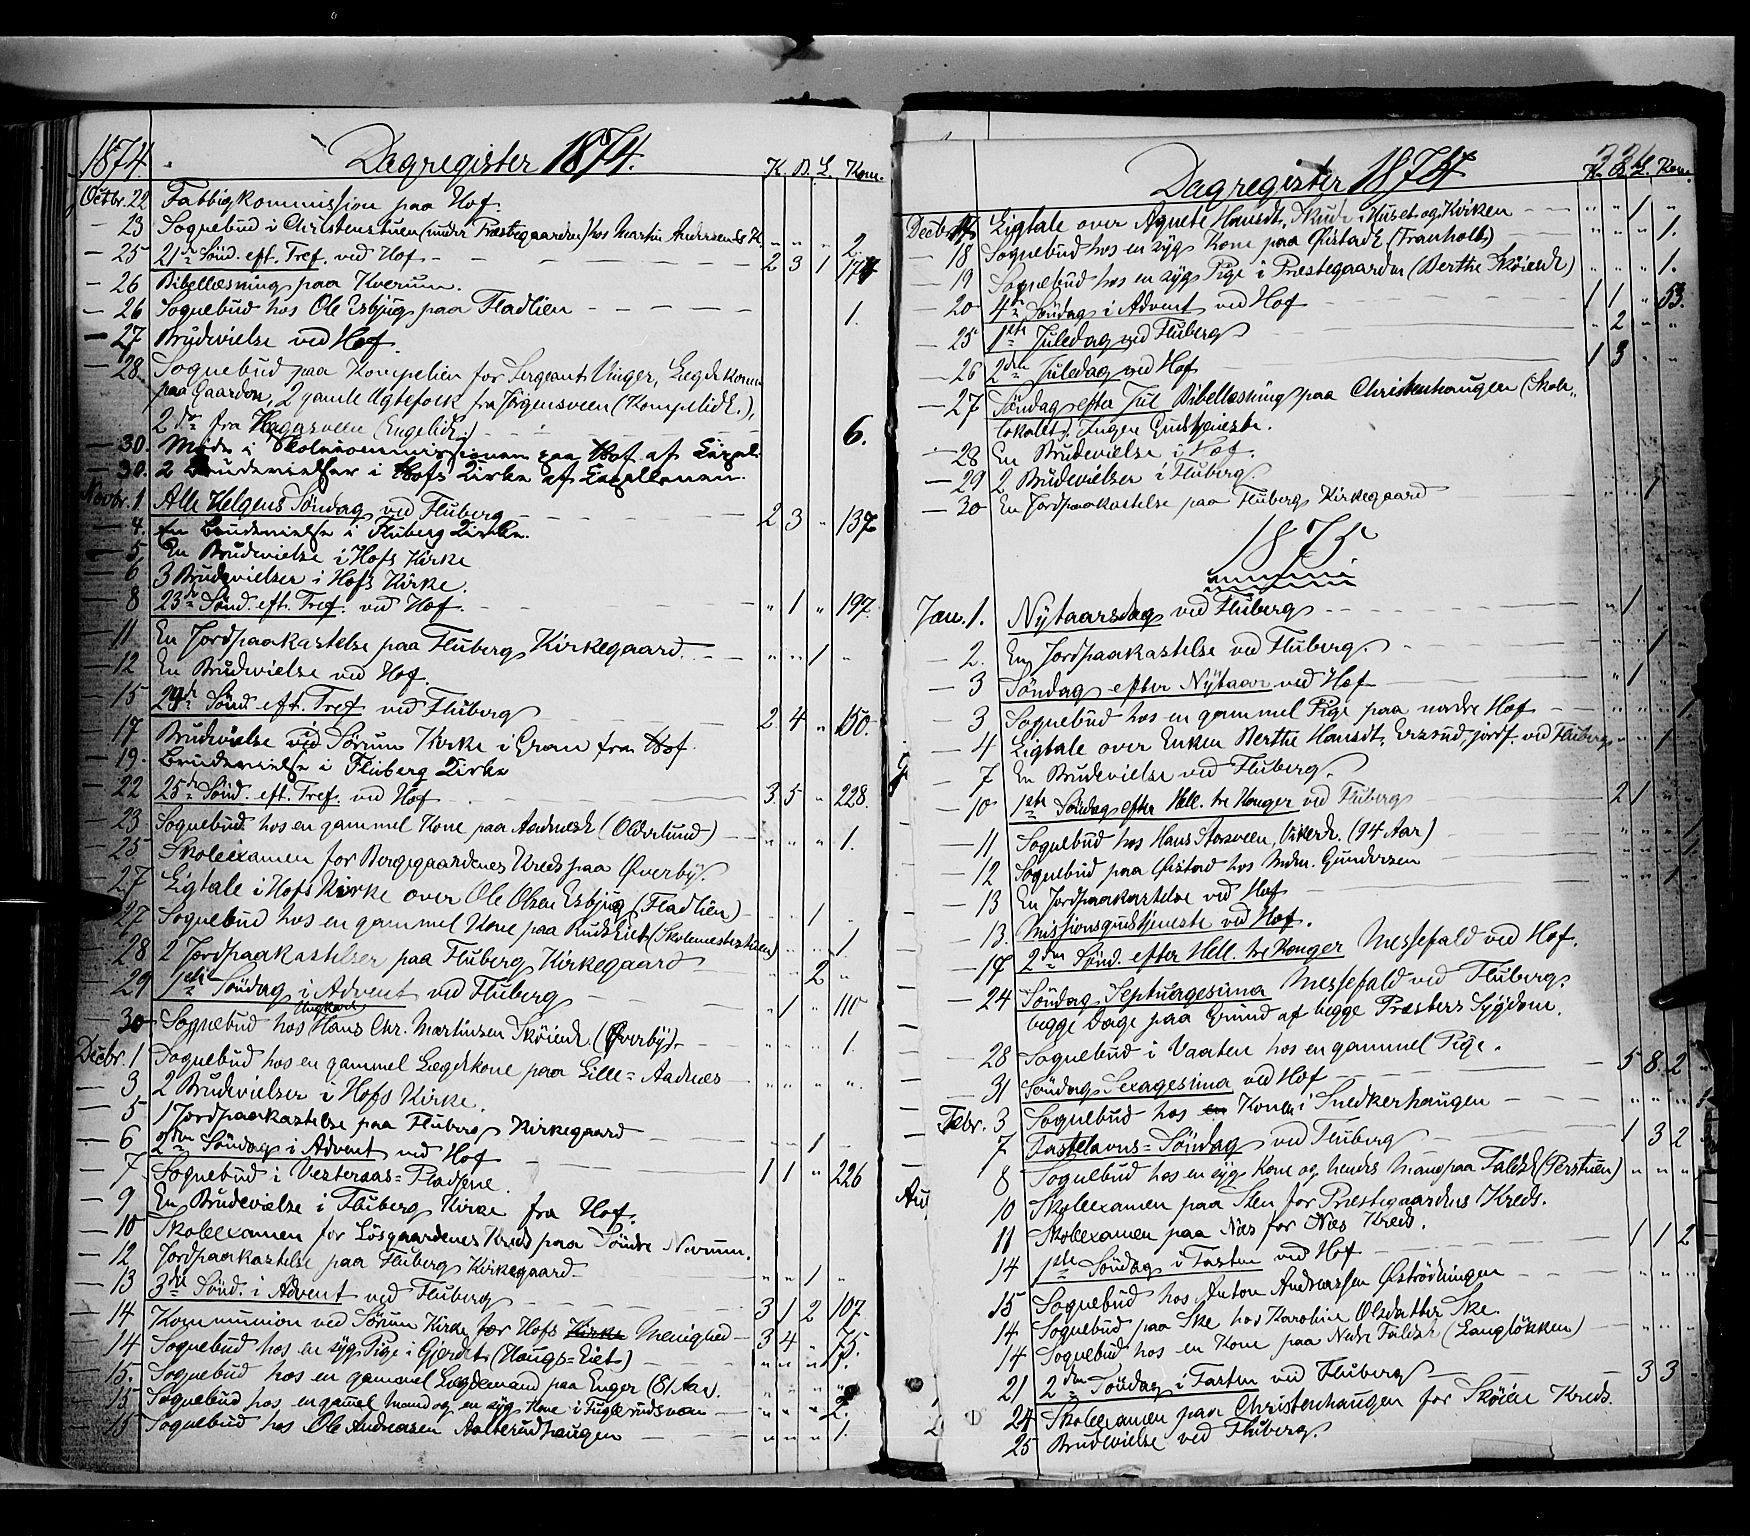 1874. Dagregister 1874. K. D. L. Kom.
Octbr. 22 Fattigkommission paa Hof.
- 23 Sognebud i Christenstuen (under Præstegaarden) hos Martin Andersens K. " " " 2.
- 25 21de Sønd. eft. Tref. ved Hof 2 3 1
- 26 Bibellæsning paa Kverum.
- 26 Sognebud hos Ole Esbjug paa Fladlien 1.
- 27 Brudevielse ved Hof.
- 28. Sognebud paa Kompelien for Sergeant Vinger, Lægdekonen
paa Gaarden, 2 gamle Ægtefolk fra Jörgensveen (Kompelidt.),
2 do fra Hagarsveen (Engelidt.) 6.
- 30. Møde i Skolekommissionen paa Hof af
- 30. 2 Brudevielser i Hofs Kirke af
Novbr. 1 Alle Helgens Söndag ved Fluberg 2 3 " 137
- 4. En Brudevielse i Fluberg Kirke.
- 5 En Brudevielse i Hofs Kirke
- 6 3 Brudevielser i Hofs Kirke.
- 8 23de Sönd. eft. Tref. ved Hof. " 1 " 197.
- 11 En Jordpaakastelse paa Fluberg Kirkegaard. " " 1 "
- 12 En Brudevielse ved Hof.
- 15 24de Sönd. eft. Tref ved Fluberg 2 4 " 150.
- 17 Brudevielse ved Sörum Kirke i Gran fra Hof.
- 19. Brudevielse i Fluberg Kirke
- 22 25de Sönd. eft. Tref. ved Hof 3 5 " 228.
- 23 Sognebud hos en gammel Kone paa Aadnesk (Olderlund) " " " 1.
- 25 Skoleexamen for Borgegaardenes Kreds paa Øverby.
- 27 Ligtale i Hofs Kirke over Ole Olsen Esbjug (Fladlien) " " 1 "
- 27 Sognebud hos en gammel Kone paa Rudseiet (Skolemesterstuen) " " " 1.
- 28 2 Jordpaakastelser paa Fluberg Kirkegaard " " 2 "
- 29 1ste Söndag i Advent ved Fluberg " 1 " 110
- 30 Sognebud hos Ungkarl Hans Chr. Martinsen Sköiendr. (Øverby) " " " 1.
Decbr. 1 Sognebud hos en gammel Lægdskone paa Lille-Aadnes " " " "
- 3 2 Brudevielser i Hofs Kirke.
- 5 1 Jordpaakastelse paa Fluberg Kirkegaard " " 1 "
- 6 2den Söndag i Advent ved Hof 1 1 " 226
- 7 Sognebud i Vesteraas-Pladsene.
- 9 En Brudevielse i Fluberg Kirke fra Hof.
- 10 Skoleexamen for Lösgaardenes Kreds paa Söndre Nerum.
- 12 Jordpaakastelse paa Fluberg Kirkegaard " " 1 "
- 13 3die Sönd. i Advent ved Fluberg 3 1 2 107
- 14 Kommunion ved Sörum Kirke for Hofs Kirke Menighed 3 4 " 75.
- 14 Sognebud hos en syg Pige i Gjerdet (Haugs-Eiet) " " " 1.
- 15. Sognebud hos en gammel Lægdemand paa Enger (81 Aar). " " "
- 15 Sognebud hos en gammel Mand og en syg Kone i Fuglerudsveen " " " 2.
- 15 Sognebud hos Ole Andreasen Aalterudhaugen " " " 1.
Dagregister 1874 K. D. L. Kom.
Decbr. 17 Ligtale over Agnete Hansdt. Skude i Huset og Kirken " " 1 "
- 18 Sognebud hos en syg Kone paa Øistadt (Tranholt) " " " 1.
- 19 Sognebud hos en syg Pige i Præstegaarden (Berthe Sköiendr) " " " 1.
- 20 4de Söndag i Advent ved Hof 1 1 " 53.
- 25 1ste Juledag ved Fluberg " 2 " "
- 26 2den Juledag ved Hof 1 3 " "
- 27 Söndag efter Jul Bibellæsning paa Christenhaugen (Skole-
lokalet). Ingen Gudstjeneste.
- 28 En Brudevielse i Hof.
- 29 2 Brudevielser i Fluberg.
- 30 En Jordpaakastelse paa Fluberg Kirkegaard " " 1 "
1875.
Jan. 1. Nytaarsdag ved Fluberg " 1 " "
- 2. En Jordpaakastelse ved Fluberg. " " 1 "
- 3 Söndag efter Nytaar ved Hof " 1 " "
- 3 Sognebud hos en gammel Pige paa nordre Hof " " " 1.
- 4 Ligtale over Enken Berthe Hansdt. Erssud, jordf. ved Fluberg " " 1 "
- 7 En Brudevielse ved Fluberg.
- 10 1ste Söndag efter Hell. tre Konger ved Fluberg " 2 1 "
- 11 Sognebud hos Hans Storsveen, Vikerdr. (94 Aar) " " " 1
- 12 Sognebud paa Øistad hos Mdm. Gundersen " " " 1
- 13 En Jordpaakastelse ved Hof " " 1 "
- 13. Missionsgudstjeneste ved Hof.
- 17 2den Sönd. efter Hell. tre Konger Messefald ved Hof.
- 24 Söndag Septuagesima Messefald ved Fluberg.
begge Dage paa Grund af begge Præsters Sygdom.
- 28 Sognebud i Vaaten hos en gammel Pige.
- 31 Söndag Sexagesima ved Hof 5 8 2
Febr. 3 Sognebud hos en Konen i Snedkerhaugen " " " 1
7 Fastelavns-Söndag ved Fluberg 1 3 2
8 Sognebud hos en syg Kone og hendes Mand paa Faldsk (Perstuen) " " "
10 Skoleexamen paa Sten for Præstegaardens Kreds.
11 Skoleexamen paa Næs for Næs Kreds.
14 1ste Söndag i Fasten ved Hof 1 1 2
15 Sognebud hos Anton Andreassen Öströdningen " " "
14 Sognebud paa Ske hos Karoline Olsdatter Ske
14 Sognebud hos en Kone paa Nedre Faldsk (Langlökken) " " "
21 2den Söndag i Fasten ved Fluberg 3 3 "
24 Skoleexamen paa Christenhaugen for Sköien Kreds.
25 Brudevielse ved Fluberg.